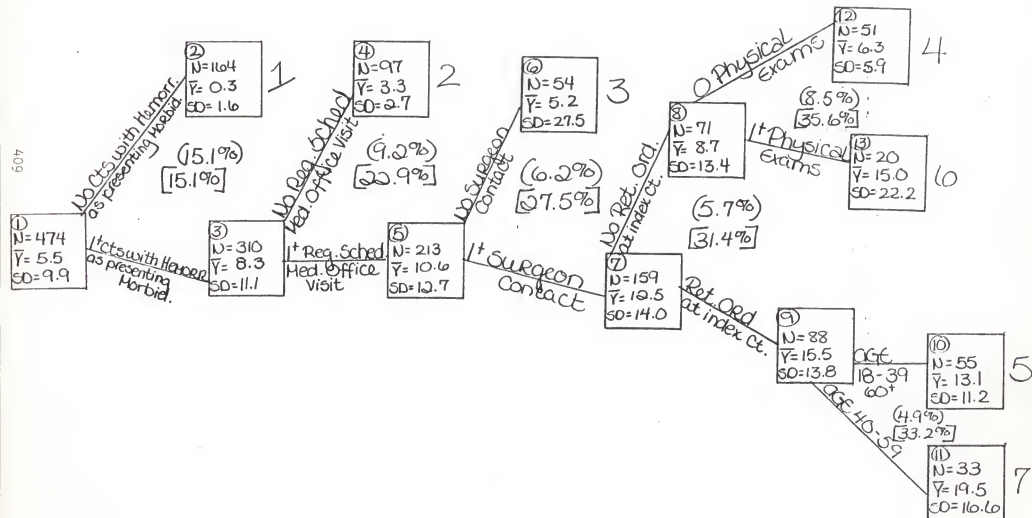 409
①
N=474
Y̅=5.5
SD=9.9
No Cts with Hemorr.
as presenting Morbid.
②
N=164
Y̅=0.3
SD=1.6
1
(15.1%)
[15.1%]
1+ cts with Hemorr
as presenting
Morbid.
③
N=310
Y̅=8.3
SD=11.1
No Reg. Sched
Med. Office Visit
④
N=97
Y̅=3.3
SD=2.7
2
(9.2%)
[22.9%]
1+ Reg. Sched.
Med. Office
Visit
⑤
N=213
Y̅=10.6
SD=12.7
No Surgeon
Contact
⑥
N=54
Y̅=5.2
SD=27.5
3
(6.2%)
[27.5%]
1+ Surgeon
Contact
⑦
N=159
Y̅=12.5
SD=14.0
No Ret. Ord.
at index ct.
⑧
N=71
Y̅=8.7
SD=13.4
(5.7%)
[31.4%]
0 Physical
Exams
⑫
N=51
Y̅=6.3
SD=5.9
4
(8.5%)
[35.6%]
1+ Physical
Exams
⑬
N=20
Y̅=15.0
SD=22.2
6
Ret. Ord
at index ct.
⑨
N=88
Y̅=15.5
SD=13.8
age
18-39
60+
⑩
N=55
Y̅=13.1
SD=11.2
5
(4.9%)
[33.2%]
age 40-59
⑪
N=33
Y̅=19.5
SD=16.6
7